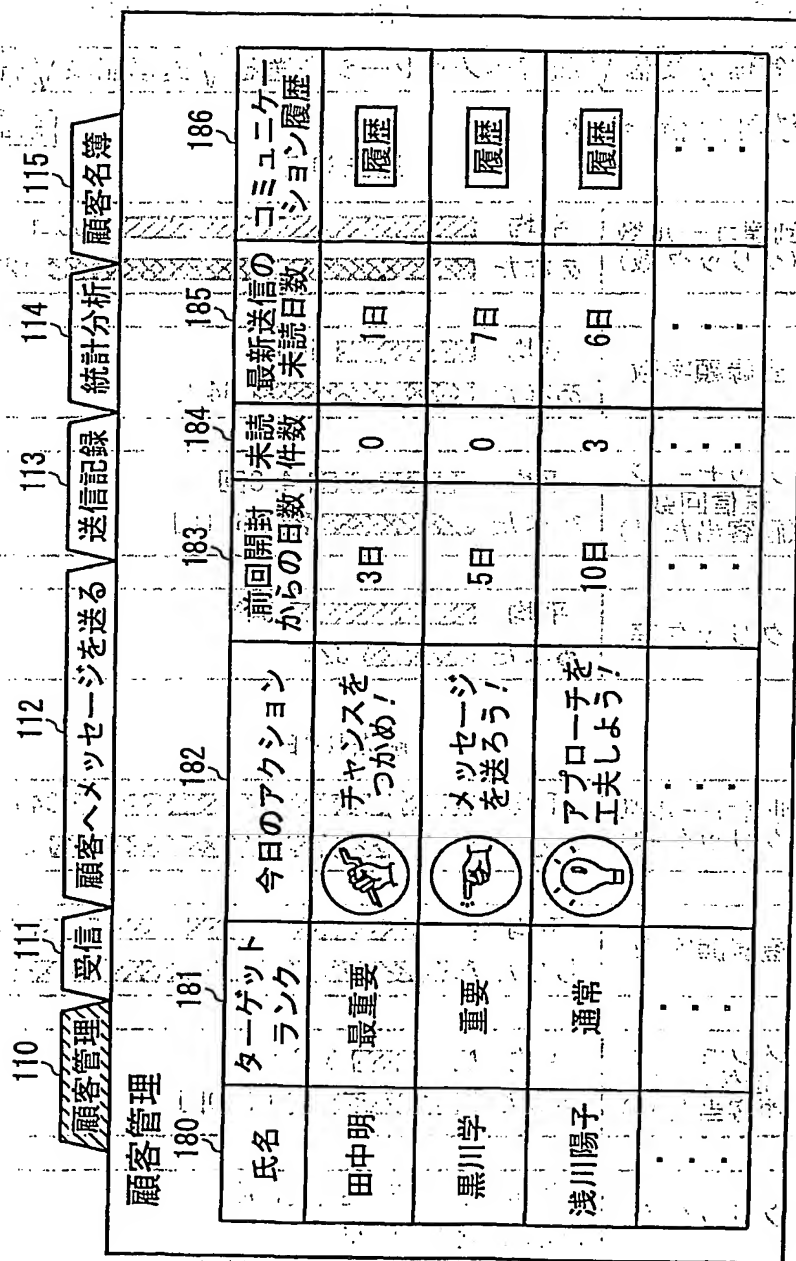 110
111
112
113
114
115
顧客管理
受信
顧客へメッセージを送る
送信記録
統計分析
顧客名簿
顧客管理
180
181
182
183
184
185
186
氏名
ターゲット
ランク
今日のアクション
前回開封
からの日数
未読
件数
最新送信の
未読日数
コミュニケー
ション履歴
田中明
最重要
チャンスを
つかめ!
3日
0
1日
履歴
黒川学
重要
メッセージ
を送ろう!
5日
0
7日
履歴
浅川陽子
通常
アプローチを
工夫しよう!
10日
3
6日
履歴